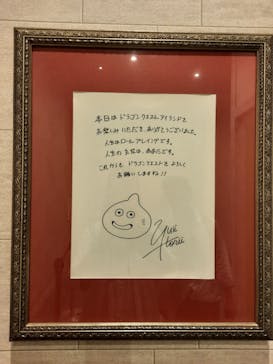 本日は ドラゴンクエストアイランドを
お楽しみいただき、ありがとうございました。
人生はロールプレイングです。
人生の主役は、あなたです。
これからも ドラゴンクエストを よろしく
お願いしますね!!
Yuji
Horii